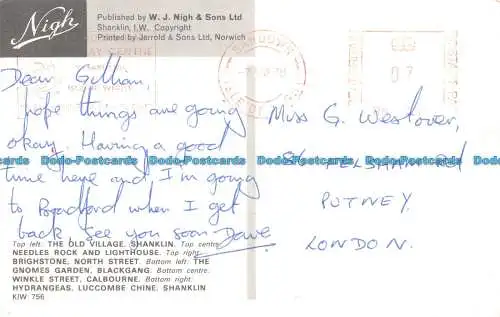 Nigh
Published by W. J. Nigh & Sons Ltd
Shanklin, I.W. Copyright
Printed by Jarrold & Sons Ltd, Norwich
SANDOWN
Dear Gillian,
hope things are going
okay. Having a good
time here and I'm going
to Bradford when I get
back, see you soon Dave
Miss G. Westover,
PUTNEY
LONDON.
Dodo-Postcards Dodo-Postcards Dodo-Postcards Dodo-Postcards
Top left: THE OLD VILLAGE, SHANKLIN. Top centre:
NEEDLES ROCK AND LIGHTHOUSE. Top right:
BRIGHSTONE, NORTH STREET. Bottom left: THE
GNOMES GARDEN, BLACKGANG. Bottom centre:
WINKLE STREET, CALBOURNE. Bottom right:
HYDRANGEAS, LUCCOMBE CHINE, SHANKLIN
KIW 756